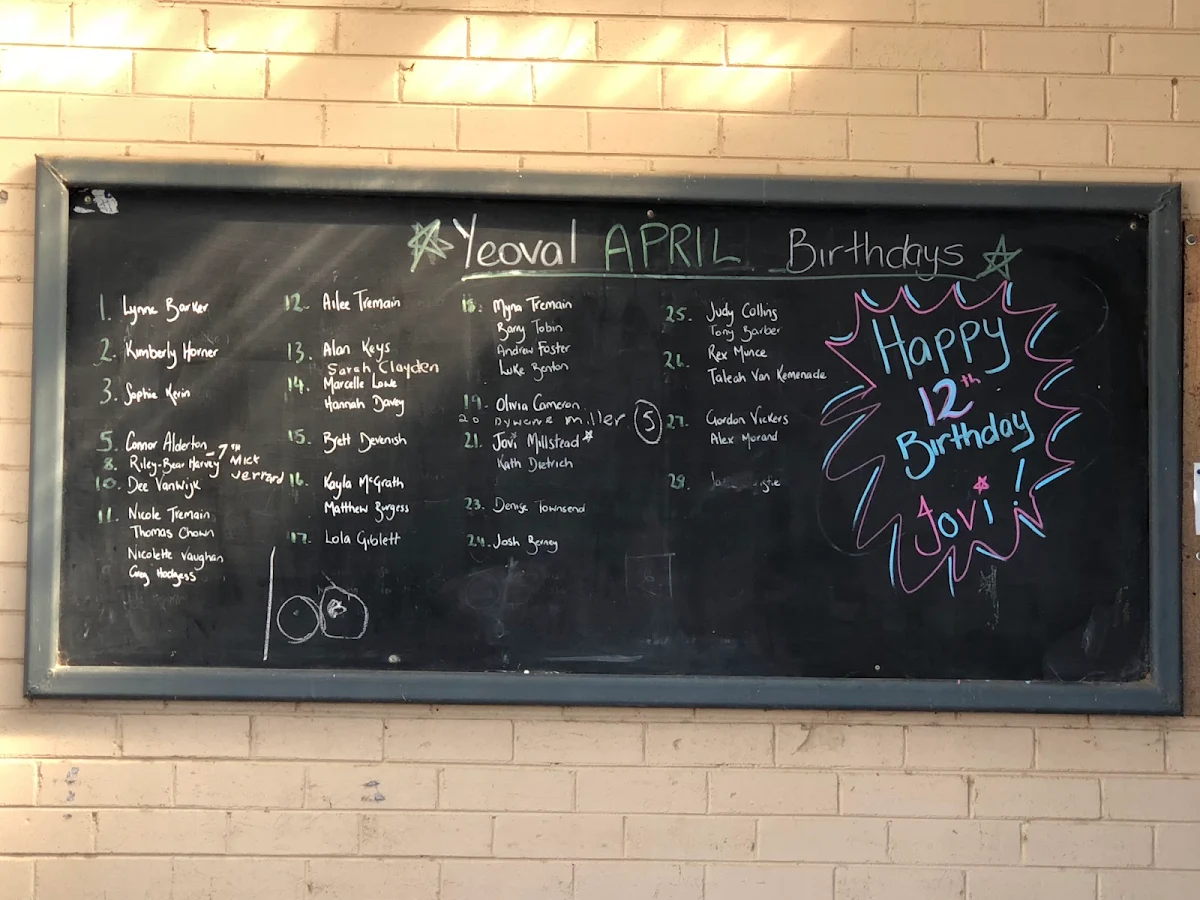 Yeoval APRIL Birthdays
1. Lynne Barker
2. Kimberly Horner
3. Sophie Kerin
5. Connor Alderton
- 7TH Mick Jerrard
8. Riley-Bear Harvey
10. Dee Vanwijk
11. Nicole Tremain
Thomas Chown
Nicolette Vaughan
Greg Hodgess
12. Ailee Tremain
13. Alan Keys
Sarah Clayden
14. Marcelle Lowe
Hannah Davey
15. Brett Devenish
16. Kayla McGrath
Matthew Burgess
17. Lola Giblett
18. Myna Tremain
Barry Tobin
Andrew Foster
Luke Benton
19. Olivia Cameron
20 miller 5
21. Jovi Millstead
Kath Dietrich
23. Denise Townsend
24. Josh Berney
25. Judy Collins
Tony Barber
26. Rex Munce
Taleah Van Kemenade
27. Gordon Vickers
Alex Morand
29.
Happy
12th
Birthday
Jovi!